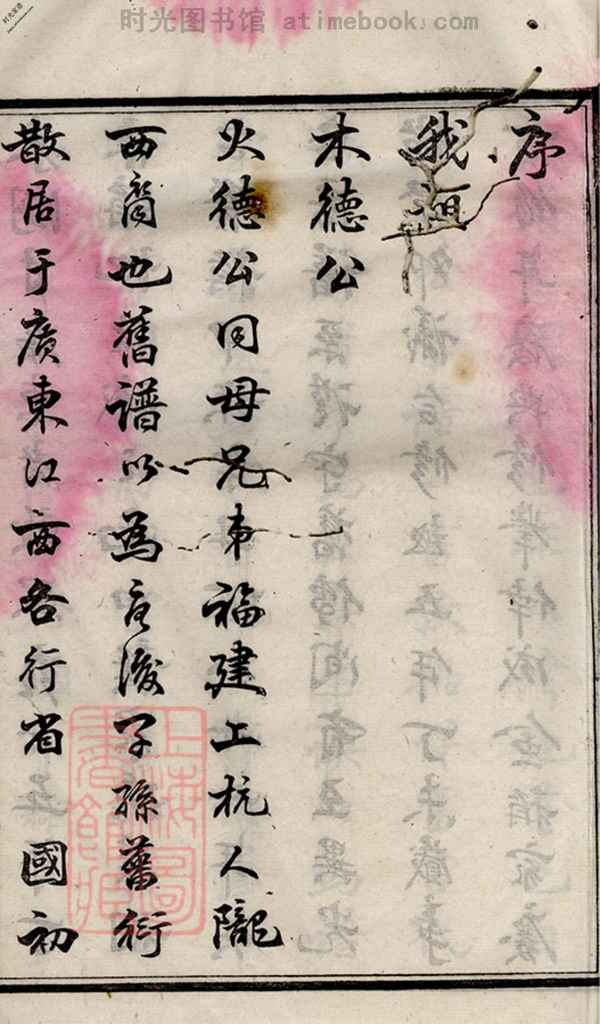 时光图书馆 atimebook.com
序
我祖
木德公
火德公同母兄本福建上杭人隴
西裔也舊譜以為言後子孫蕃衍
散居于廣東江西各行省　國初
上海圖書館藏